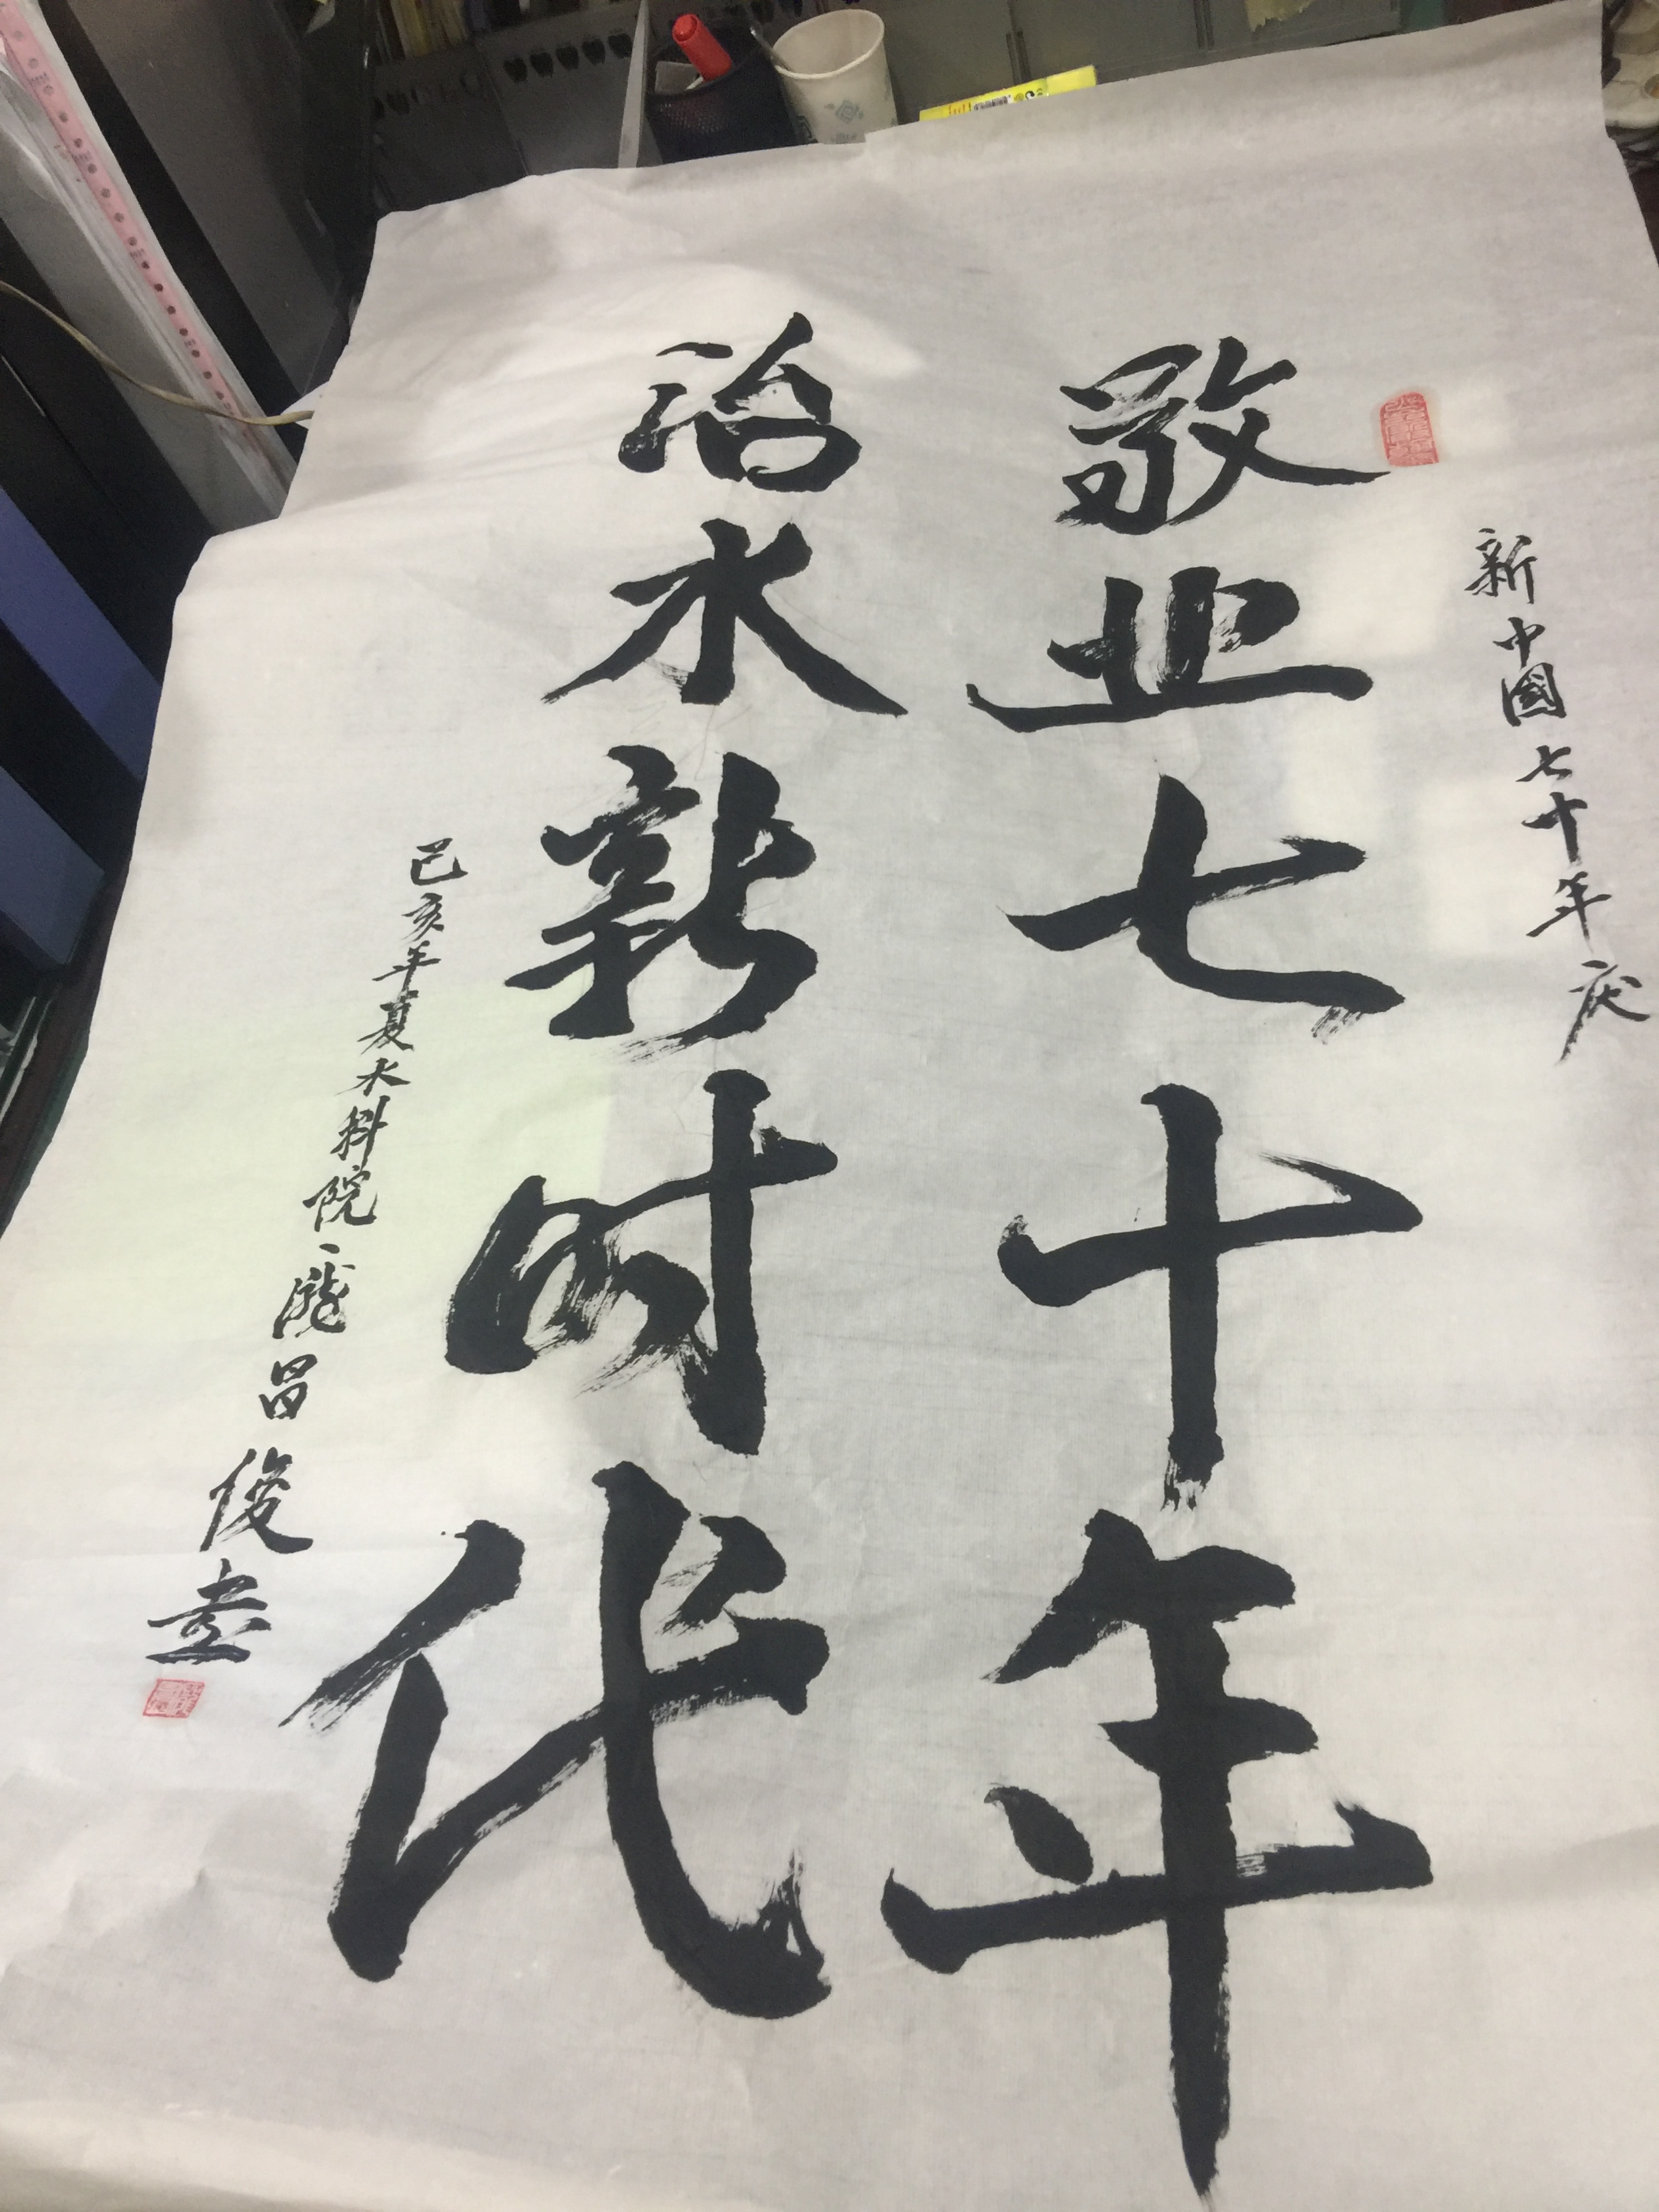 新中國七十年庆
敬业七十年
治水新时代
己亥年夏水科院
昌俊书